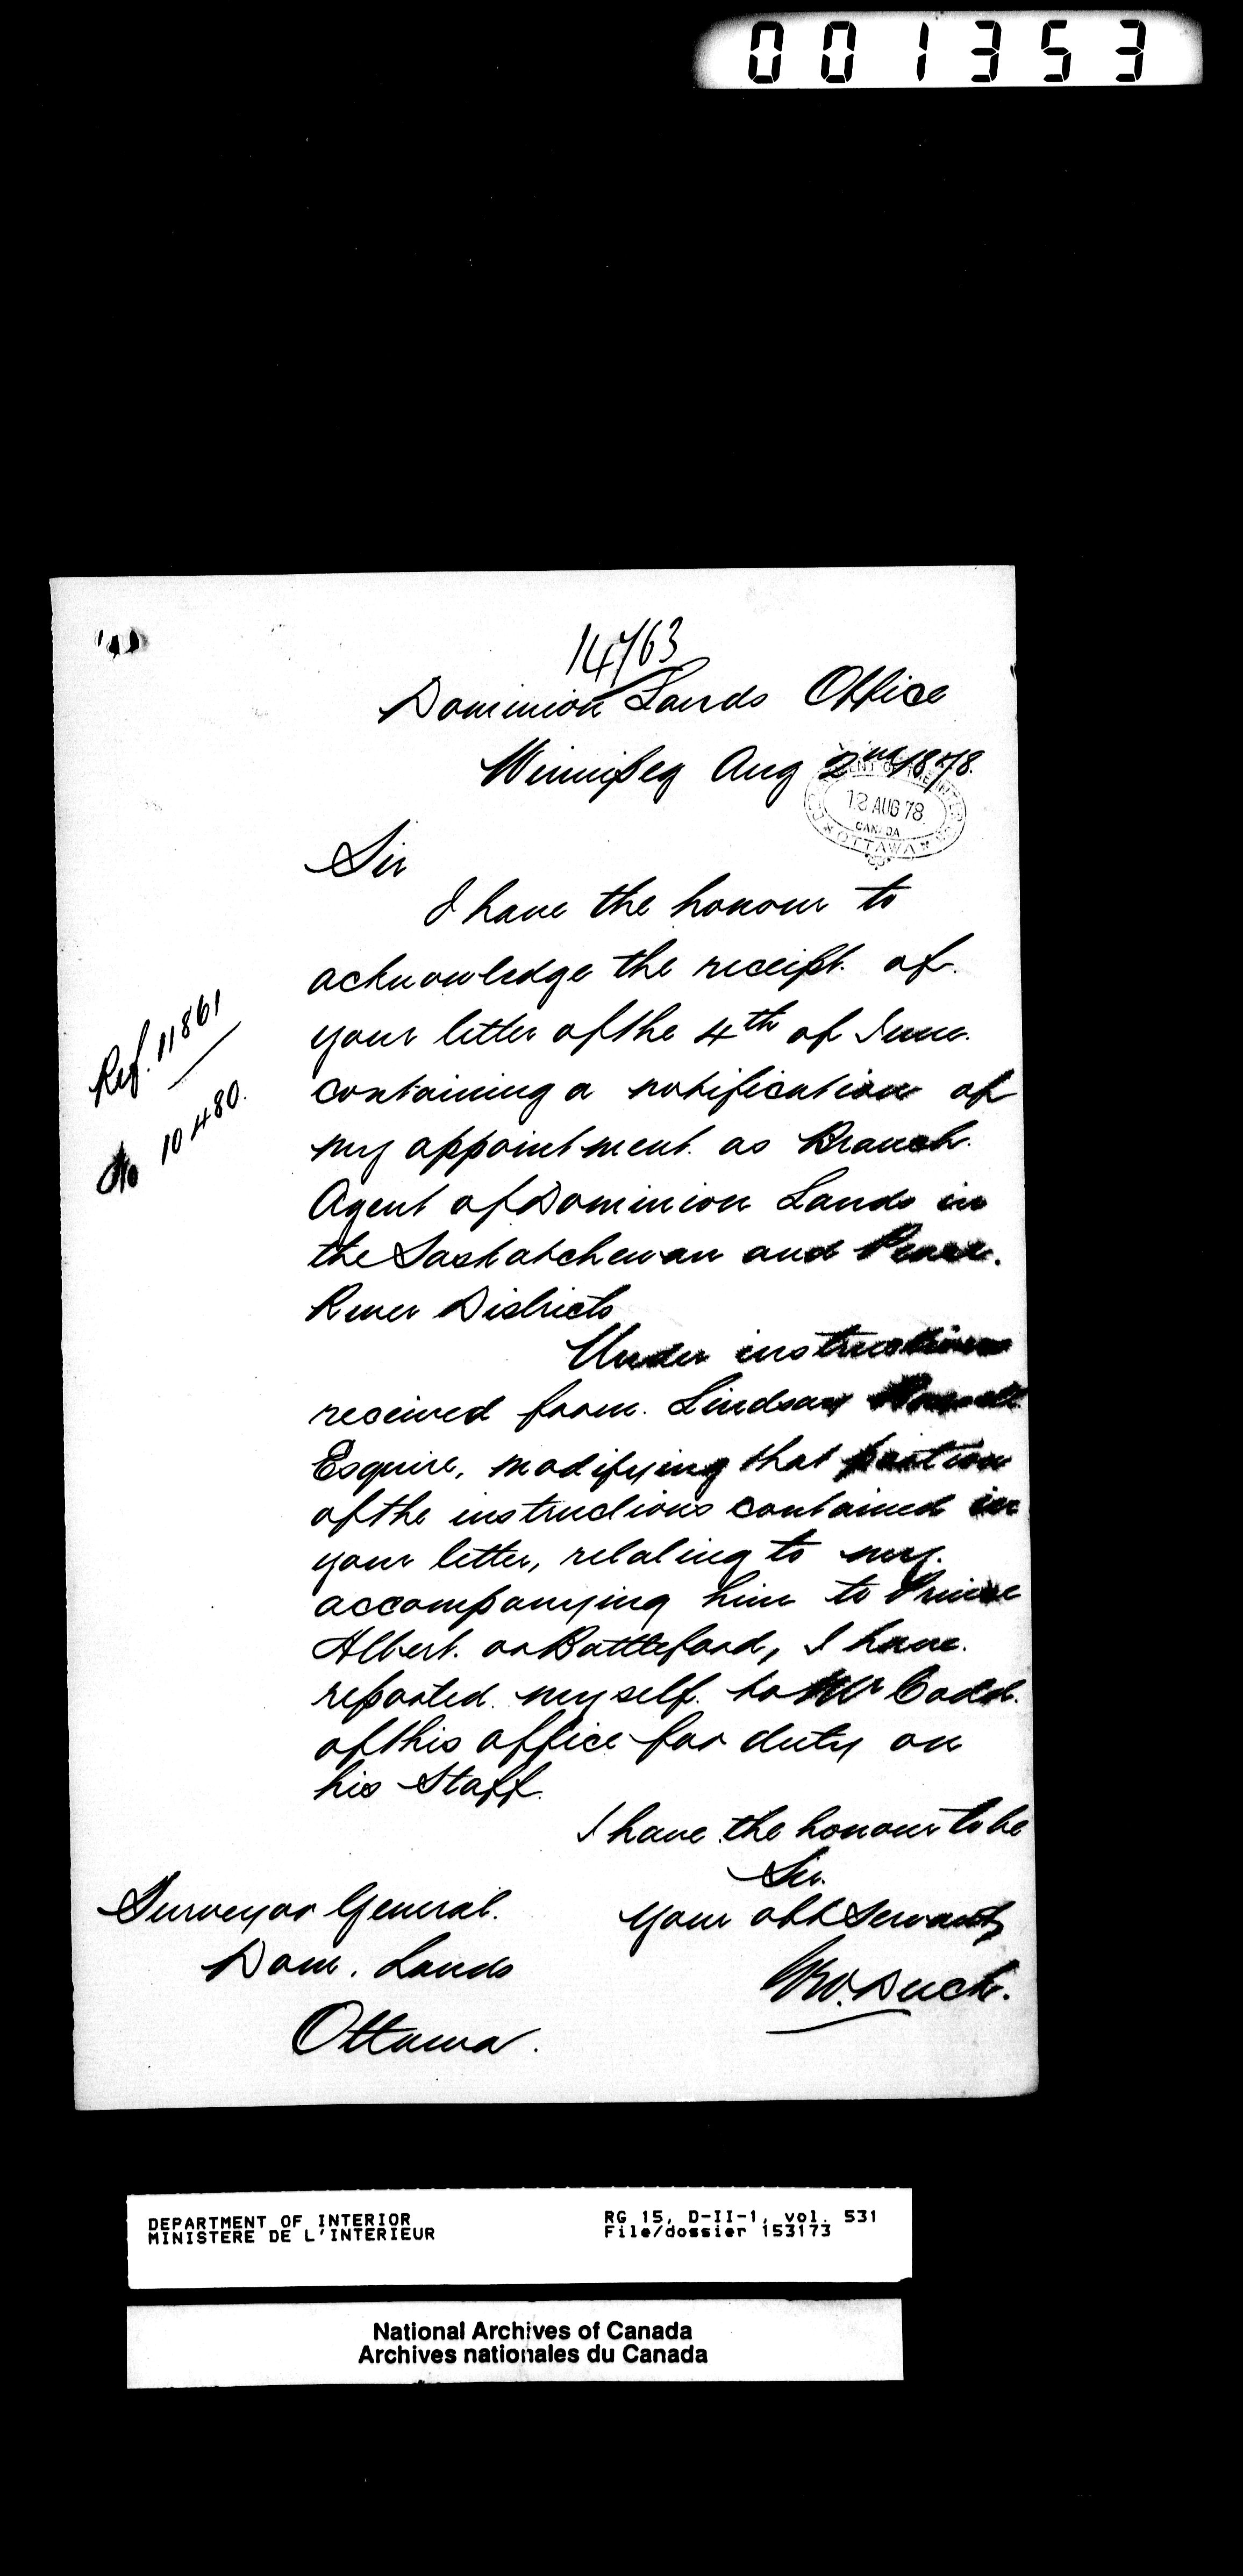 001353
14763
Dominion Lands Office
Winnipeg Aug 2nd 1878.
DEPARTMENT OF THE INTERIOR
12 AUG 78
CANADA
OTTAWA
Sir
I have the honour to
acknowledge the receipt of
your letter of the 4th of June
containing a notification of
my appointment as Branch
Agent of Dominion Lands in
the Saskatchewan and Peace
River Districts
Under instructions
received from Lindsay Russell
Esquire, modifying that portion
of the instructions contained in
your letter, relating to my
accompanying him to Prince
Albert or Battleford, I have
reported myself to Mr Codd
of this office for duty on
his Staff.
I have the honour to be
Sir
Your obt Servant
Duck.
Surveyor General.
Dom. Lands
Ottawa.
Ref. 11861
No 10480.
DEPARTMENT OF INTERIOR
MINISTERE DE L'INTERIEUR
RG 15, D-II-1, vol. 531
File/dossier 153173
National Archives of Canada
Archives nationales du Canada